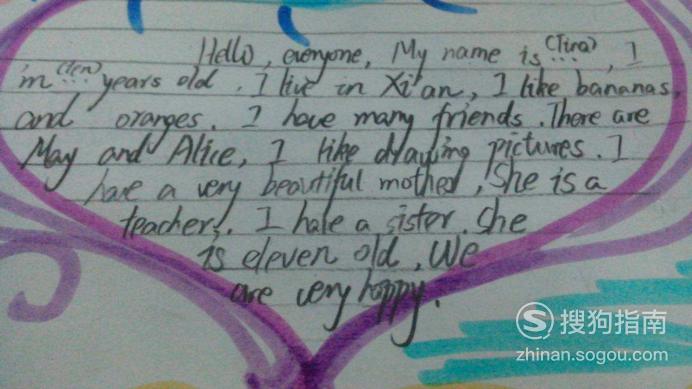 Hello, everyone, My name is (Tina) ..., I
m (Ten) ... years old. I live in Xi'an, I like bananas,
and oranges. I have many friends. There are
May and Alice, I like drawing pictures. I
have a very beautiful mother, She is a
teacher. I have a sister. She
is eleven old, We
are very happy.
搜狗指南
zhinan.sogou.com